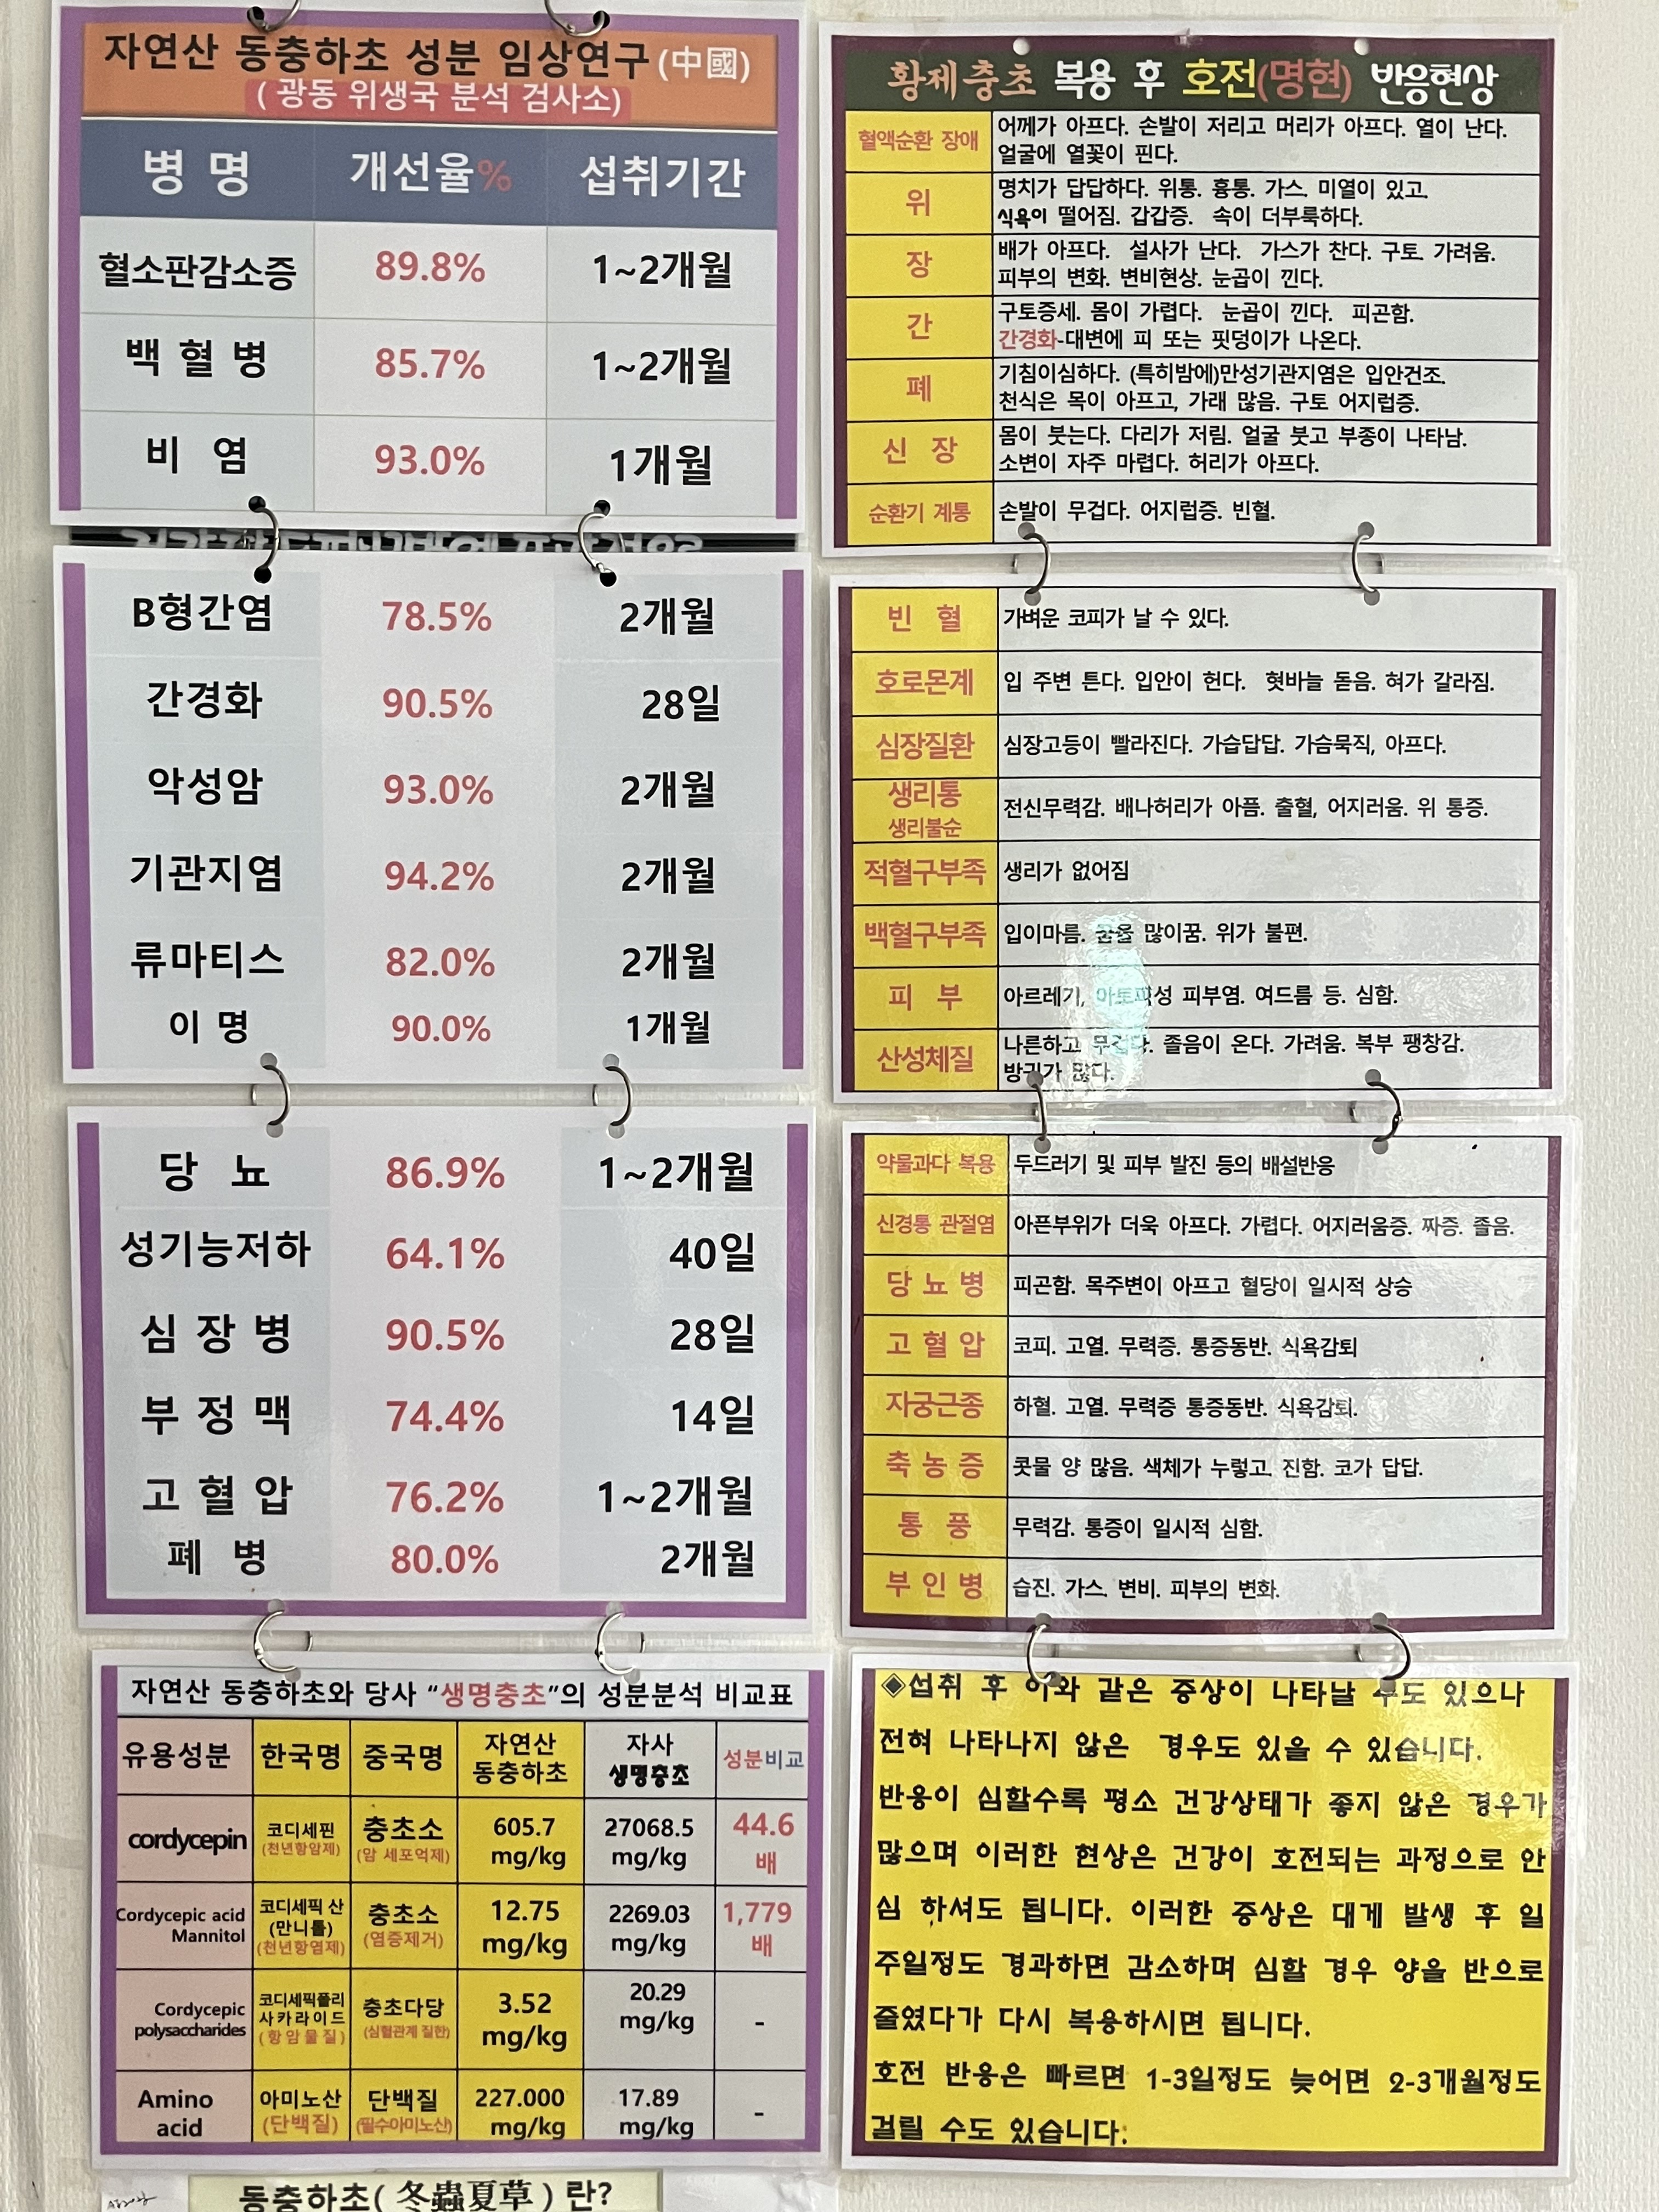 자연산 동충하초 성분 임상연구(中國)
( 광동 위생국 분석 검사소)
병 명 개선율% 섭취기간
혈소판감소증 89.8% 1~2개월
백 혈 병 85.7% 1~2개월
비 염 93.0% 1개월
B형간염 78.5% 2개월
간경화 90.5% 28일
악성암 93.0% 2개월
기관지염 94.2% 2개월
류마티스 82.0% 2개월
이 명 90.0% 1개월
당 뇨 86.9% 1~2개월
성기능저하 64.1% 40일
심 장 병 90.5% 28일
부 정 맥 74.4% 14일
고 혈 압 76.2% 1~2개월
폐 병 80.0% 2개월
자연산 동충하초와 당사 “생명충초”의 성분분석 비교표
유용성분 한국명 중국명 자연산 동충하초 자사 생명충초 성분비교
cordycepin 코디세핀 (천년항암제) 충초소 (암 세포억제) 605.7 mg/kg 27068.5 mg/kg 44.6 배
Cordycepic acid Mannitol 코디세픽 산 (만니톨) (천년항염제) 충초소 (염증제거) 12.75 mg/kg 2269.03 mg/kg 1,779 배
Cordycepic polysaccharides 코디세픽폴리 사카라이드 (항암물질) 충초다당 (심혈관계 질한) 3.52 mg/kg 20.29 mg/kg -
Amino acid 아미노산 (단백질) 단백질 (필수아미노산) 227.000 mg/kg 17.89 mg/kg -
동충하초( 冬蟲夏草 ) 란?
황제충초 복용 후 호전(명현) 반응현상
혈액순환 장애 어께가 아프다. 손발이 저리고 머리가 아프다. 열이 난다.
얼굴에 열꽃이 핀다.
위 명치가 답답하다. 위통. 흉통. 가스. 미열이 있고.
식욕이 떨어짐. 갑갑증. 속이 더부룩하다.
장 배가 아프다. 설사가 난다. 가스가 찬다. 구토. 가려움.
피부의 변화. 변비현상. 눈곱이 낀다.
간 구토증세. 몸이 가렵다. 눈곱이 낀다. 피곤함.
간경화-대변에 피 또는 핏덩이가 나온다.
폐 기침이심하다. (특히밤에)만성기관지염은 입안건조.
천식은 목이 아프고, 가래 많음. 구토 어지럽증.
신 장 몸이 붓는다. 다리가 저림. 얼굴 붓고 부종이 나타남.
소변이 자주 마렵다. 허리가 아프다.
순환기 계통 손발이 무겁다. 어지럽증. 빈혈.
빈 혈 가벼운 코피가 날 수 있다.
호로몬계 입 주변 튼다. 입안이 헌다. 혓바늘 돋음. 혀가 갈라짐.
심장질환 심장고등이 빨라진다. 가습답답. 가슴묵직, 아프다.
생리통 생리불순 전신무력감. 배나허리가 아픔. 출혈, 어지러움. 위 통증.
적혈구부족 생리가 없어짐
백혈구부족 입이마름. 꿈을 많이꿈. 위가 불편.
피 부 아르레기, 아토피성 피부염. 여드름 등. 심함.
산성체질 나른하고 무겁다. 졸음이 온다. 가려움. 복부 팽창감.
방귀가 많다.
약물과다 복용 두드러기 및 피부 발진 등의 배설반응
신경통 관절염 아픈부위가 더욱 아프다. 가렵다. 어지러움증. 짜증. 졸음.
당 뇨 병 피곤함. 목주변이 아프고 혈당이 일시적 상승
고 혈 압 코피. 고열. 무력증. 통증동반. 식욕감퇴
자궁근종 하혈. 고열. 무력증 통증동반. 식욕감퇴.
축 농 증 콧물 양 많음. 색체가 누렇고. 진함. 코가 답답.
통 풍 무력감. 통증이 일시적 심함.
부 인 병 습진. 가스. 변비. 피부의 변화.
◈섭취 후 이와 같은 증상이 나타날 수도 있으나
전혀 나타나지 않은 경우도 있을 수 있습니다.
반응이 심할수록 평소 건강상태가 좋지 않은 경우가
많으며 이러한 현상은 건강이 호전되는 과정으로 안
심 하셔도 됩니다. 이러한 증상은 대게 발생 후 일
주일정도 경과하면 감소하며 심할 경우 양을 반으로
줄였다가 다시 복용하시면 됩니다.
호전 반응은 빠르면 1-3일정도 늦어면 2-3개월정도
걸릴 수도 있습니다.